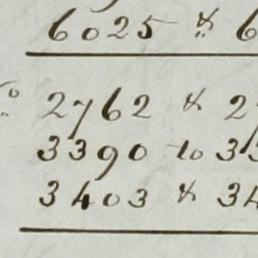 6025 & 6
2762 & 2
3390 to 33
3403 & 34